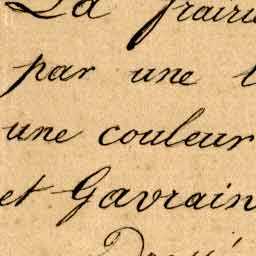 La frairie
par une
une couleur
et Gavrain